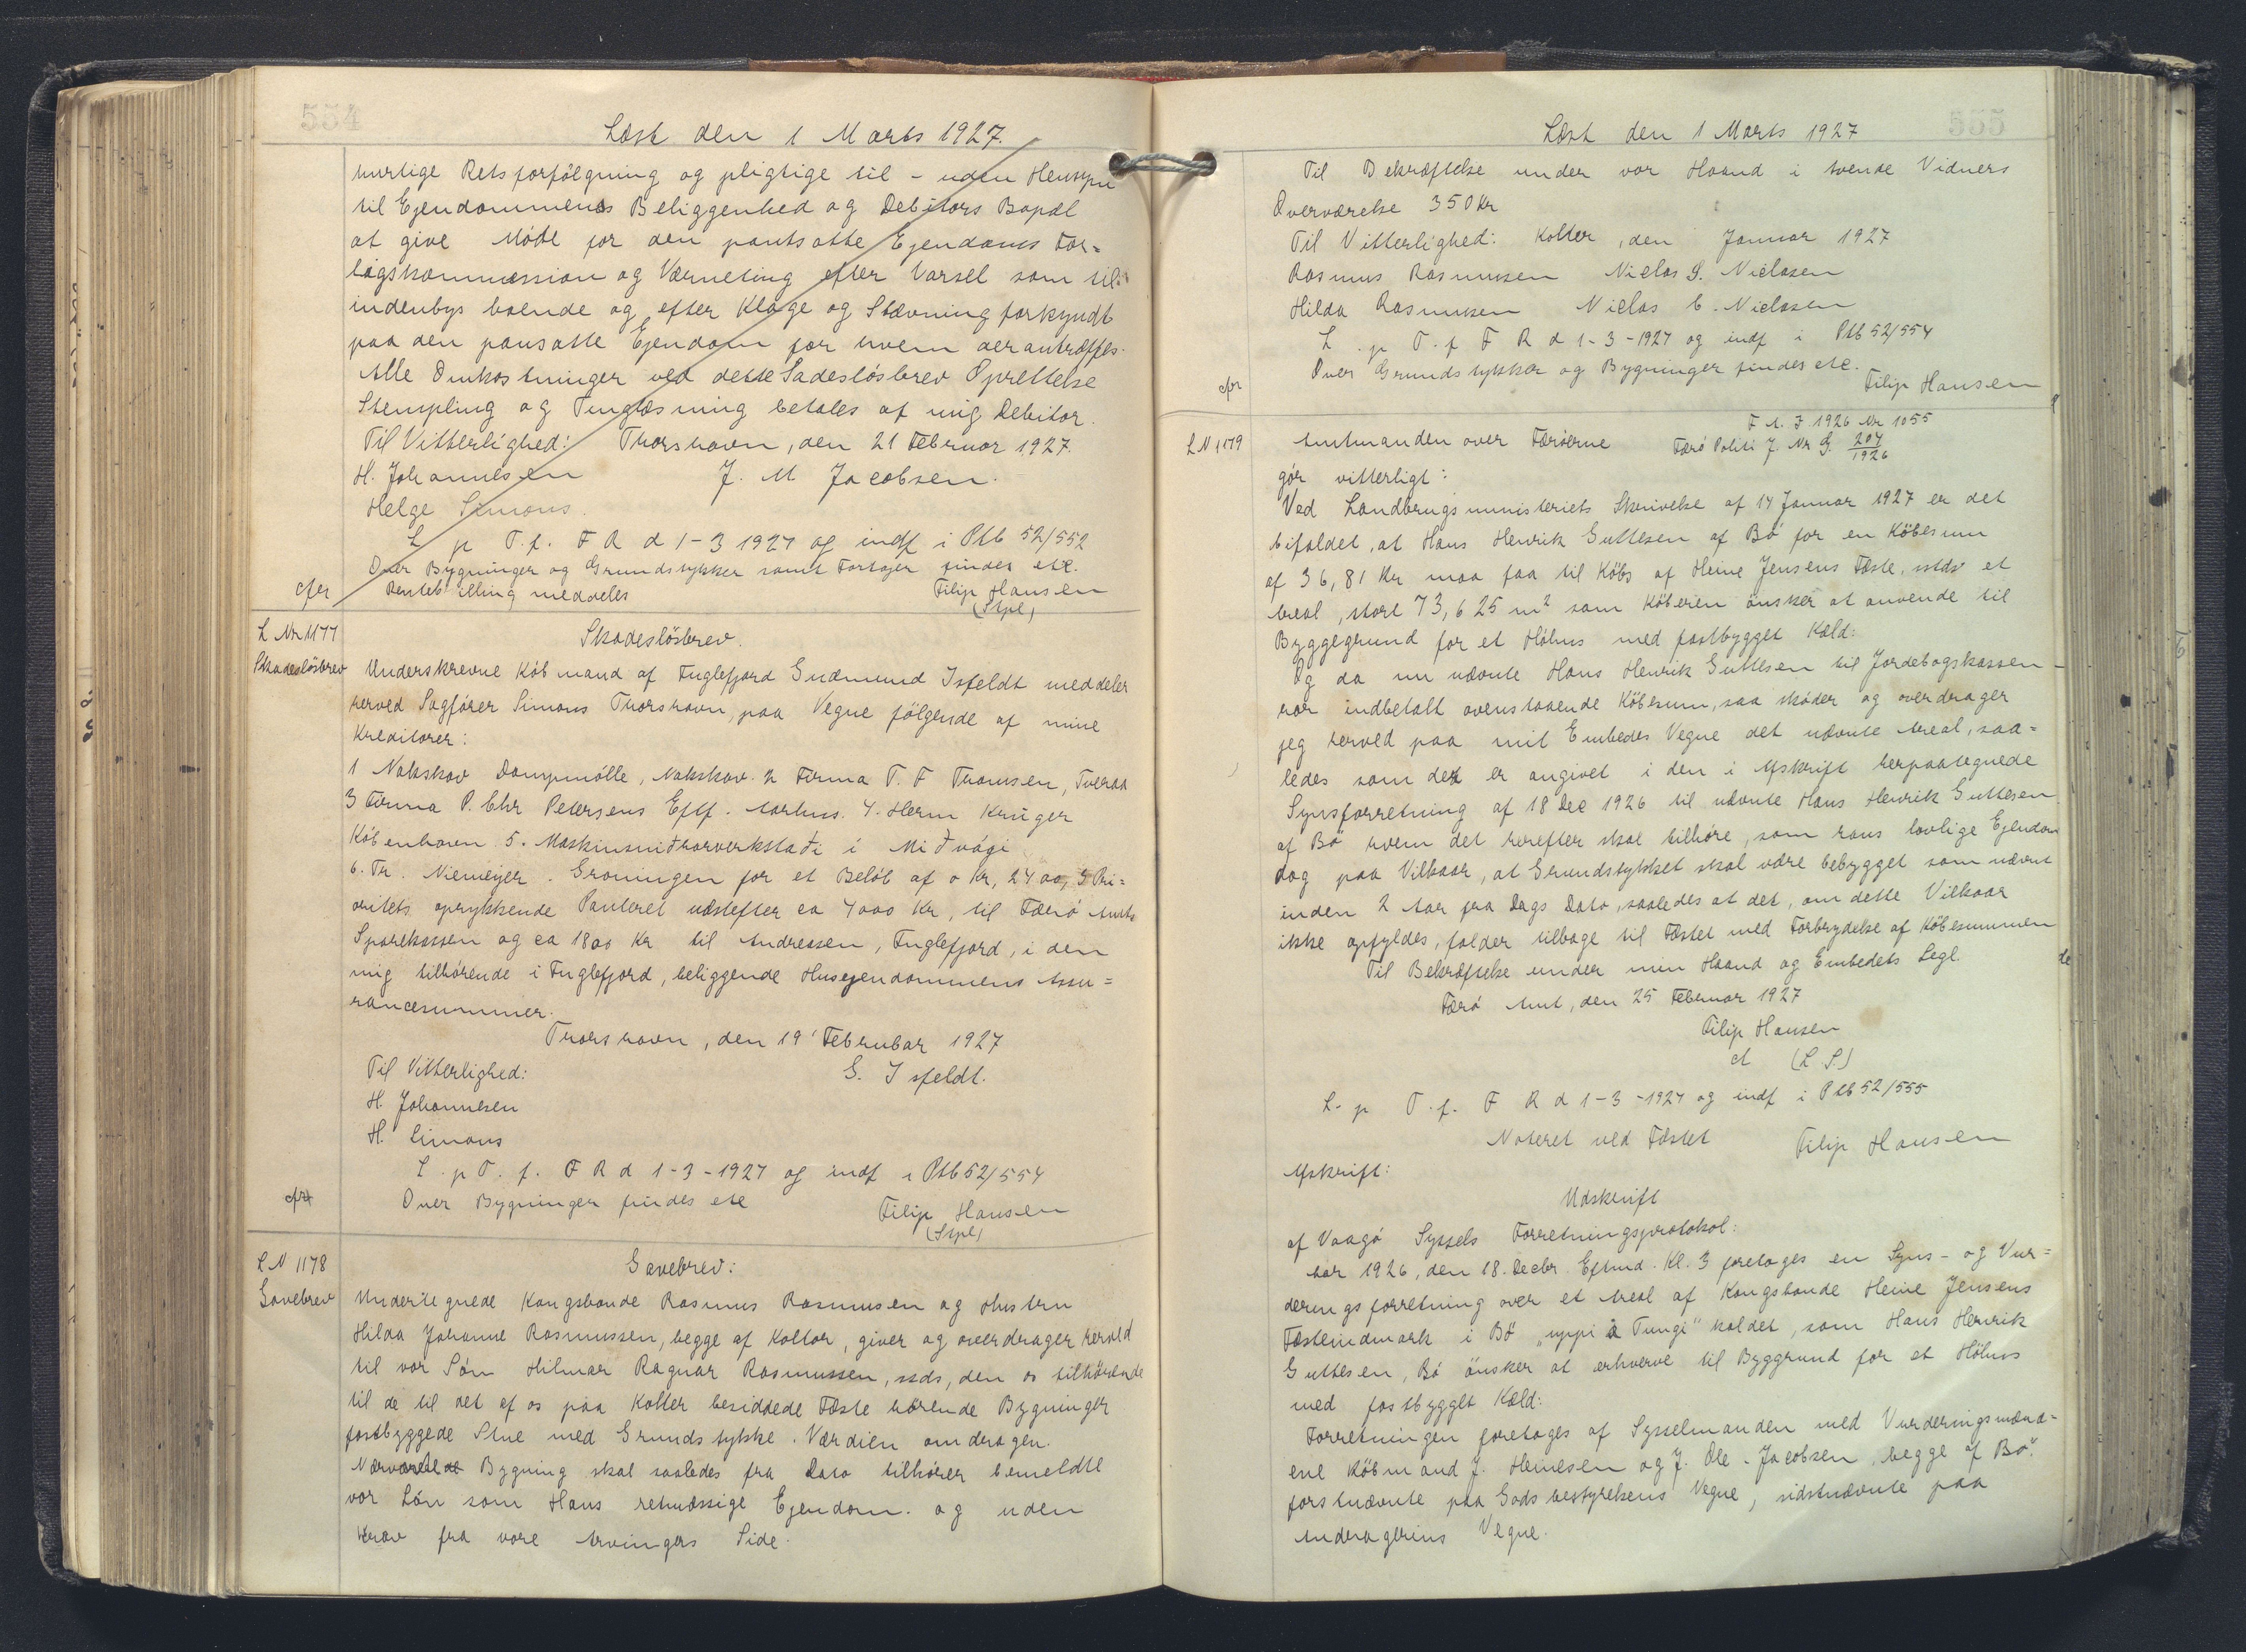 554
Læst den 1 Marts 1927.
hurtige Retsforfölgning og pligtige til - uden Hensyn
til Ejendommens Beliggenhed og Debitors Bopæl
at give Möde for den pantsatte Ejendoms For=
ligskommission og Værneting efter Varsel som til
indenbys boende og efter Klage og Stævning forkyndt
paa den pansatte Ejendom for hvem der antræffes.
Alle Omkostninger ved dette Sadeslösbrev Oprettelse
Stempling og Tinglæsning betales af mig Debitor.
Til Vitterlighed: Thorshavn, den 21 Februar 1927.
H. Johannesen J. M Jacobsen.
Helge Simons.
L p T. f. F R d 1-3 1927 og indf i Ptb 52/552
Over Bygninger og Grundstykker samt Fartøjer findes etc.
cfr Rentebilling meddeles Filip Hansen
(Stpl)
L Nr 1177 Skadeslösbrev.
Skadeslösbrev Underskrevne Köbmand af Fuglefjord Gudmund Isfeldt meddeler
herved Sagförer Simons Thorshavn, paa Vegne fölgende af mine
Kreditorer:
1 Nakskov Dampmölle, Nakskov. 2 Firma T. F Thomsen, Tveraa
3 Firma P. Chr Petersens Eftf. Aarhus. 4. Herm Krüger
Köbenhavn 5. Maskinsmiðjarverkstaði i Miðvági
6. Tr. Niemeyer. Groningen for et Belöb af o Kr, 2400, 3 Pri=
oritets oprykkende Panteret næstefter ca 4000 Kr, til Færö Amts
Sparekassen og ca 1800 Kr til Andreasen, Fuglefjord, i den
mig tilhörende i Fuglefjord, beliggende Husejendommens Assu=
rancesummer.
Thorshavn, den 19 Februbar 1927
Til Vitterlighed: G. Isfeldt.
H. Johannesen
H. Simons
L. p T. f. F R d 1-3-1927 og indf i Ptb 52/554
cfr Over Bygninger findes etc
Filip Hansen
(Stpl)
L N 1178 Gavebrev:
Gavebrev Undertegnede Kongsbonde Rasmus Rasmusen og Hustru
Hilda Johanne Rasmussen, begge af Koltor, giver og overdrager herved
til vor Sön Hilmar Ragnar Rasmussen, ssds, den os tilhörende
til de til det af os paa Kolter besiddede Fæste hörende Bygninger
fastbyggede Stue med Grundstykke. Værdien omdragen.
Nærværende Bygning skal saaledes fra Dato tilhörer bemeldte
vor Sön som Hans retmæssige Ejendom. og uden
Krav fra vore Arvingers Side.
555
Læst den 1 Marts 1927
Til Bekræftelse under vor Haand i tvende Vidners
Overværelse 350 Kr
Til Vitterlighed: Kolter, den Januar 1927
Rasmus Rasmussen Niclas S. Niclasen
Hilda Rasmussen Niclas C. Niclasen
L. p T. f F R d 1-3-1927 og indf i Ptb 52/554
Over Grundstykker og Bygninger findes etc.
cfr Filip Hansen
F A. J 1926 Nr 1055
L N 1179 Amtmanden over Færöerne Færö Politi J. Nr G. 204/1926
gör vitterligt:
Ved Landbrugsministeriets Skrivelse af 14 Januar 1927 er det
bifaldet, at Hans Henrik Guttesen af Bö for en Köbesum
af 36,81 Kr maa faa til Köbs af Heine Jensens Fæste, sstds et
Areal, stort 73,625 m² som Köberen önsker at anvende til
Byggegrund for et Höhus med fastbygget Kæld:
Og da nu nævnte Hans Henrik Guttesen til Jordebogskassen -
har indbetalt ovenstaaende Köbesum, saa sköder og overdrager
jeg herved paa mit Embedes Vegne det nævnte Areal, saa=
ledes som det er angivet i den i Afskrift herpaategnede
Synsforretning af 18 Dec 1926 til nævnte Hans Henrik Guttesen
af Bö hvem det herefter skal tilhöre, som hans lovlige Ejendom
dog paa Vilkaar, at Grundstykket skal være bebygget som nævnt
inden 2 Aar fra Dags Dato, saaledes at det, om dette Vilkaar
ikke opfyldes, falder tilbage til Fæstet med Forbrydelse af Köbesummen
Til Bekræftelse under min Haand og Embedets Segl.
Færö Amt, den 25 Februar 1927
Filip Hansen
ct (L S.)
L. p T. f. F R d 1-3-1927 og indf i Ptb 52/555
Noteret ved Fæstet Filip Hansen
Afskrift:
Udskrift
af Vaagö Syssels Forretningsprotokol:
Aar 1926, den 18. Decbr. Eftmd. Kl. 3 foretoges en Syns- og Vur=
deringsforretning over et Areal af Kongsbonde Heine Jensens
Fæsteindmark i Bö "uppi à Tungi" kaldet, som Hans Henrik
Guttesen, Bö önsker at erhverve til Byggrund for et Höhus
med fastbygget Kæld:
Forretningen foretoges af Sysselmanden med Vurderingsmænd=
ene Köbmand J. Heinesen og J. Ole-Jacobsen, begge af Bö.
förstnævnte paa Godsbestyrelsens Vegne, sidstnævnte paa
Andragerens Vegne.